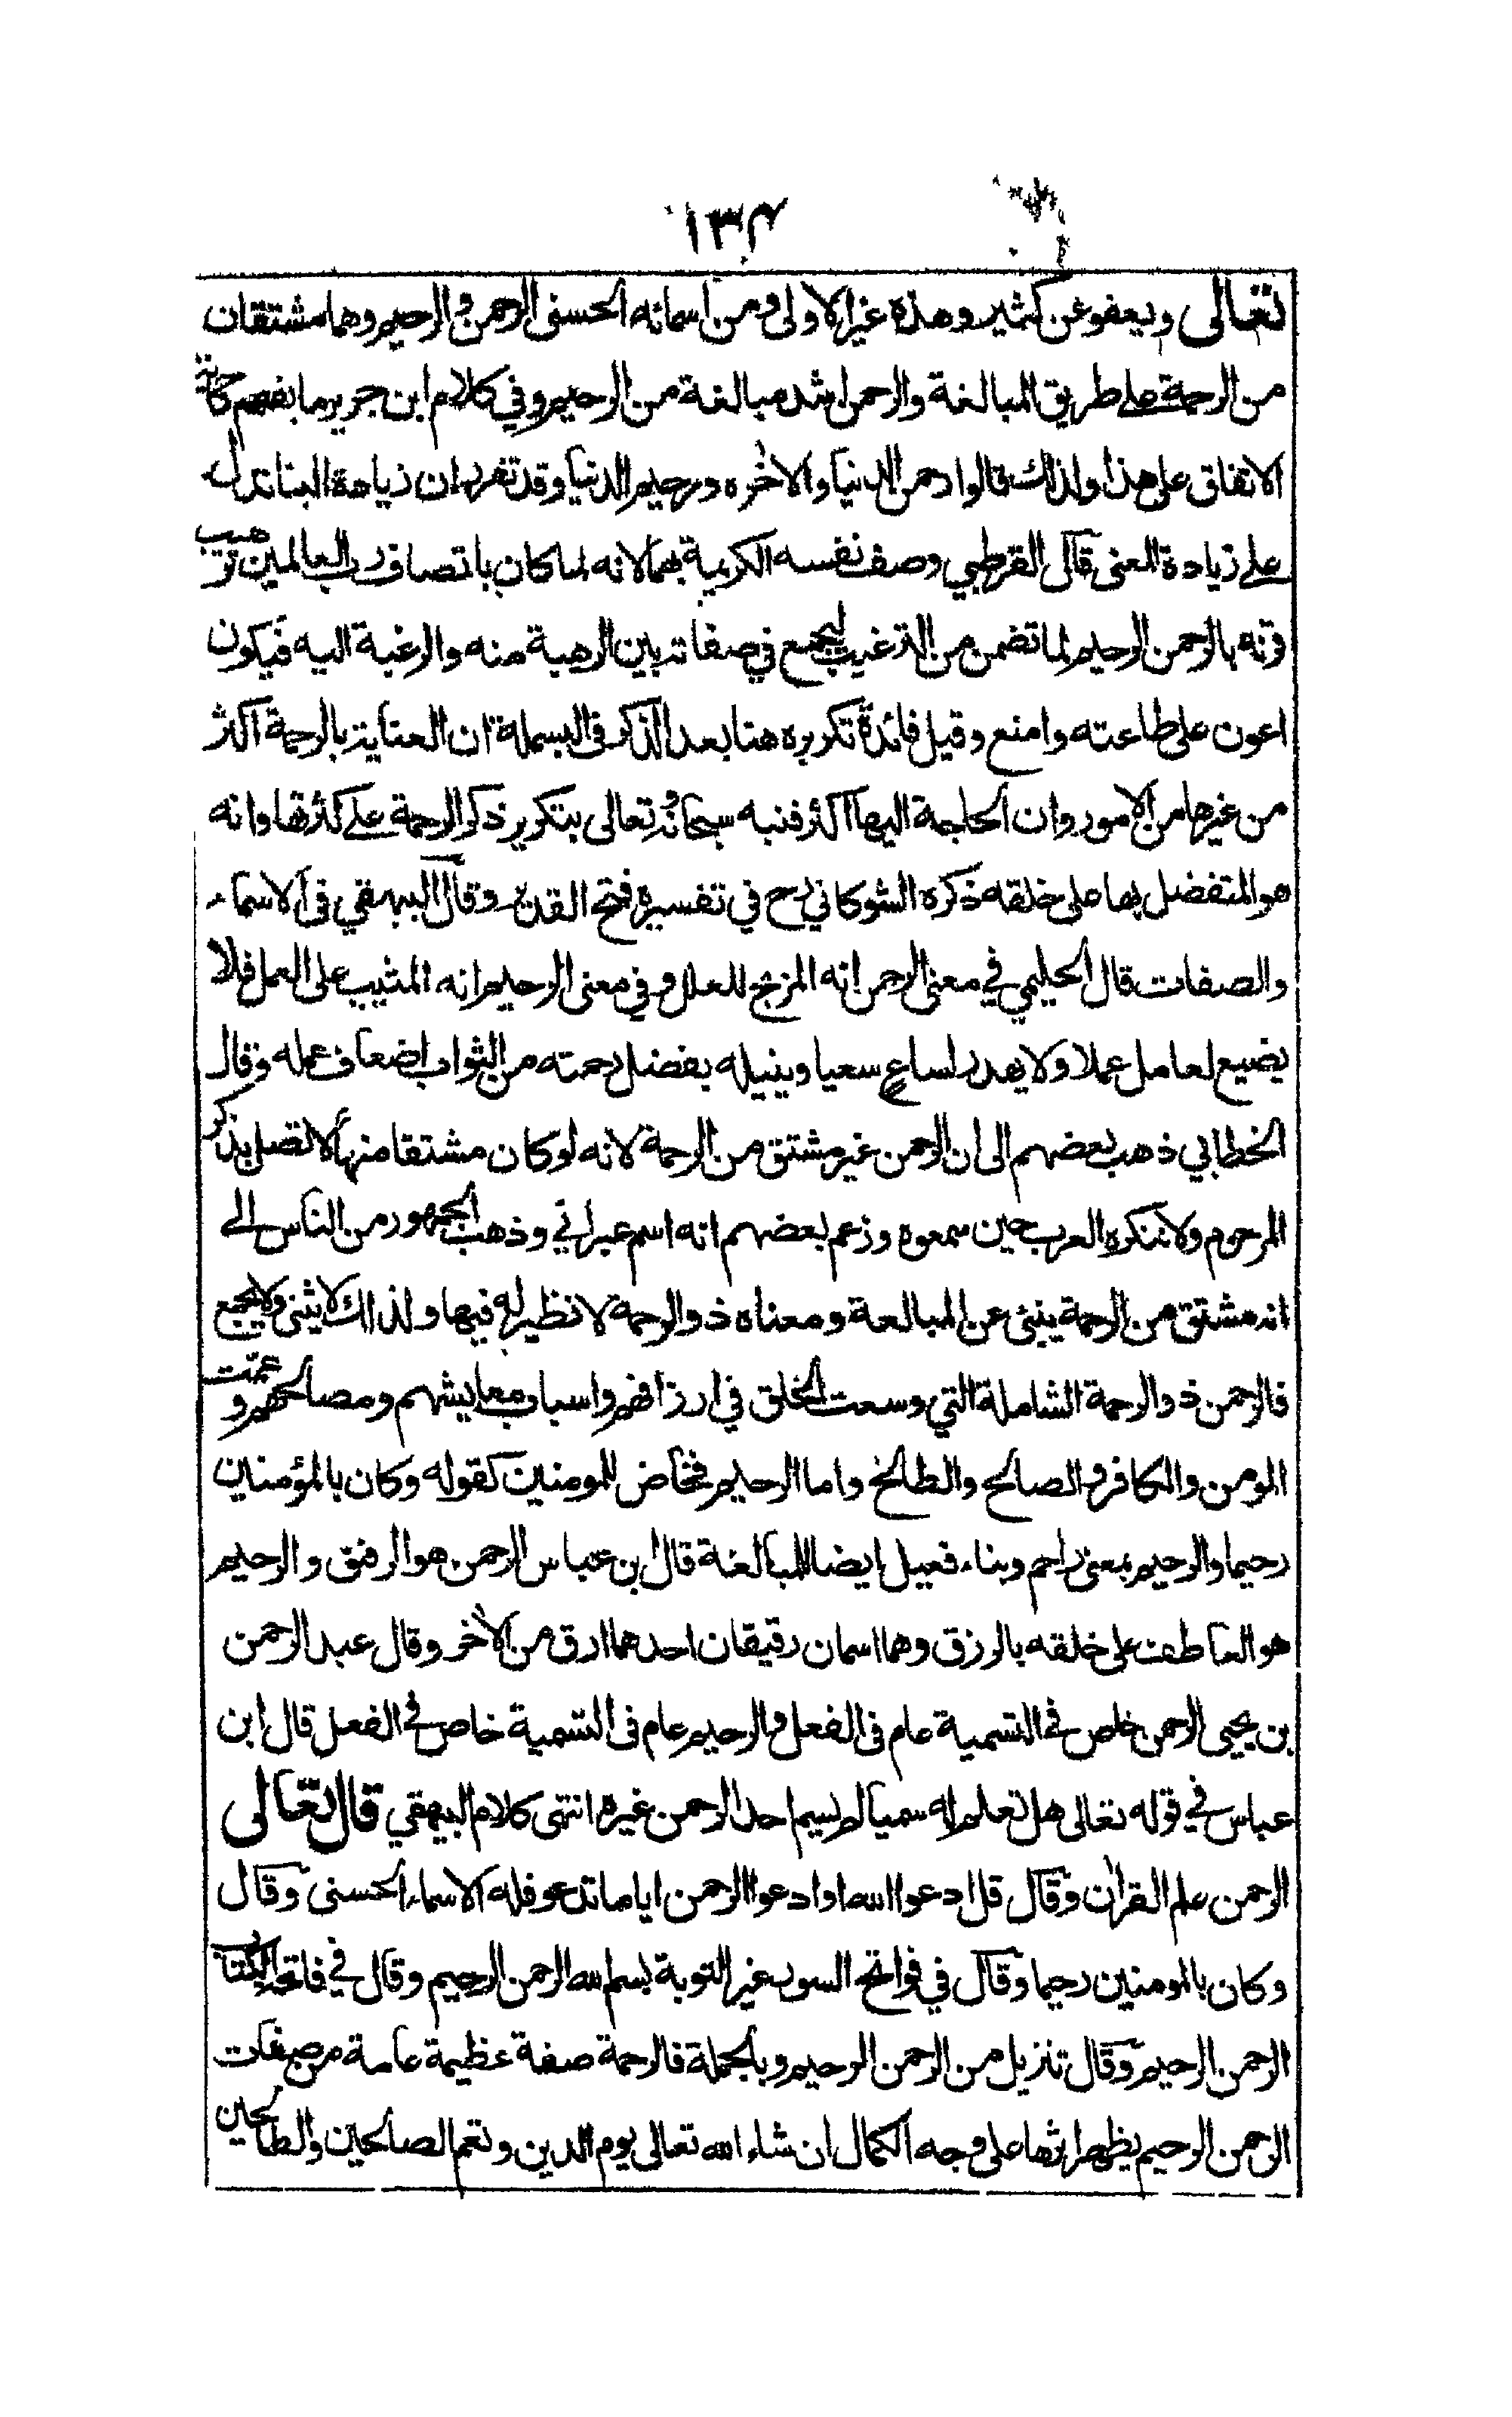 ١٣٤
تعالى ويعفو عن كثير وهذه غير الاولى ومن اسمائه الحسنى الرحمن والرحيم وهما مشتقان
من الرحمة على طريق المبالغة والرحمن اشد مبالغة من الرحيم وفي كلام ابن جرير ما يفهم حكاية
الاتفاق على هذا ولذلك قالوا رحمن الدنيا والاخره ورحيم الدنيا وقد تقرر ان زيادة البنا تدل
على زيادة المعنى قال القرطبي وصف نفسه الكريمة بهما لانه لما كان باتصاف رب العالمين ترهيب
قرنه بالرحمن الرحيم لما تضمن من الترغيب ليجمع في صفاته بين الرهبة منه والرغبة اليه فيكون
اعون على طاعته وامنع وقيل فائدة تكريره هنا بعد الذكر في البسملة ان العناية بالرحمة اكثر
من غيرها من الامور وان الحاجة اليها اكثر فنبه سبحانه وتعالى بتكرير ذكر الرحمة على كثرتها وانه
هو المتفضل بها على خلقه ذكره الشوكاني رح في تفسيره فتح القدير وقال البيهقي في الاسماء
والصفات قال الحليمي في معنى الرحمن انه المزيح للعلل وفي معنى الرحيم انه المثيب على العمل فلا
يضيع لعامل عملا ولا يهدر لساع سعيا وينيله بفضل رحمته من الثواب اضعاف عمله وقال
الخطابي ذهب بعضهم الى ان الرحمن غير مشتق من الرحمة لانه لو كان مشتقا منها لاتصل بذكر
المرحوم ولانكره العرب حين سمعوه وزعم بعضهم انه اسم عبراني وذهب الجمهور من الناس الے
انه مشتق من الرحمة ينبئ عن المبالعة ومعناه ذو الرحمة لا نظير له فيها ولذلك لا يثنى ولا يجمع
فالرحمن ذو الرحمة الشاملة التي وسعت الخلق في ارزاقهم واسباب معايشهم ومصالحهم وعمّت
المومن والكافر والصالح والطالح واما الرحيم فخاص للمومنين كقوله وكان بالمؤمنين
رحيما والرحيم بمعنى راحم وبناء فعيل ايضا للمبالغة قال ابن عباس الرحمن هو الرفق والرحيم
هو العاطف على خلقه بالرزق وهما اسمان رقيقان احدهما ارق من الاخر وقال عبد الرحمن
بن يحيى الرحمن خاص في التسمية عام في الفعل والرحيم عام في التسمية خاص في الفعل قال ابن
عباس في قوله تعالى هل تعلم له سميا لم يسم احد الرحمن غيره انتهى كلام البيهقي قال تعالى
الرحمن علم القران وقال قل ادعوا الله او ادعوا الرحمن اياما تدعو فله الاسماء الحسنى وقال
وكان بالمومنين رحيما وقال في فواتح السور غير التوبة بسم الله الرحمن الرحيم وقال في فاتحة الكتاب
الرحمن الرحيم وقال تنزيل من الرحمن الرحيم وبالجملة فالرحمة صفة عظيمة عامة من صفات
الرحمن الرحيم يظهر اثرها على وجه الكمال ان شاء الله تعالى يوم الدين وتعم الصالحين والطالحين